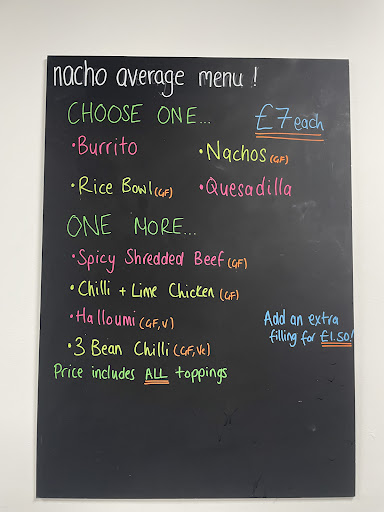 nacho average menu !
CHOOSE ONE...
£7 each
• Burrito
• Nachos (GF)
• Rice Bowl (GF)
• Quesadilla
ONE MORE...
• Spicy Shredded Beef (GF)
• Chilli + Lime Chicken (GF)
• Halloumi (GF, V)
• 3 Bean Chilli (GF, Ve)
Add an extra
filling for £1.50!
Price includes ALL toppings